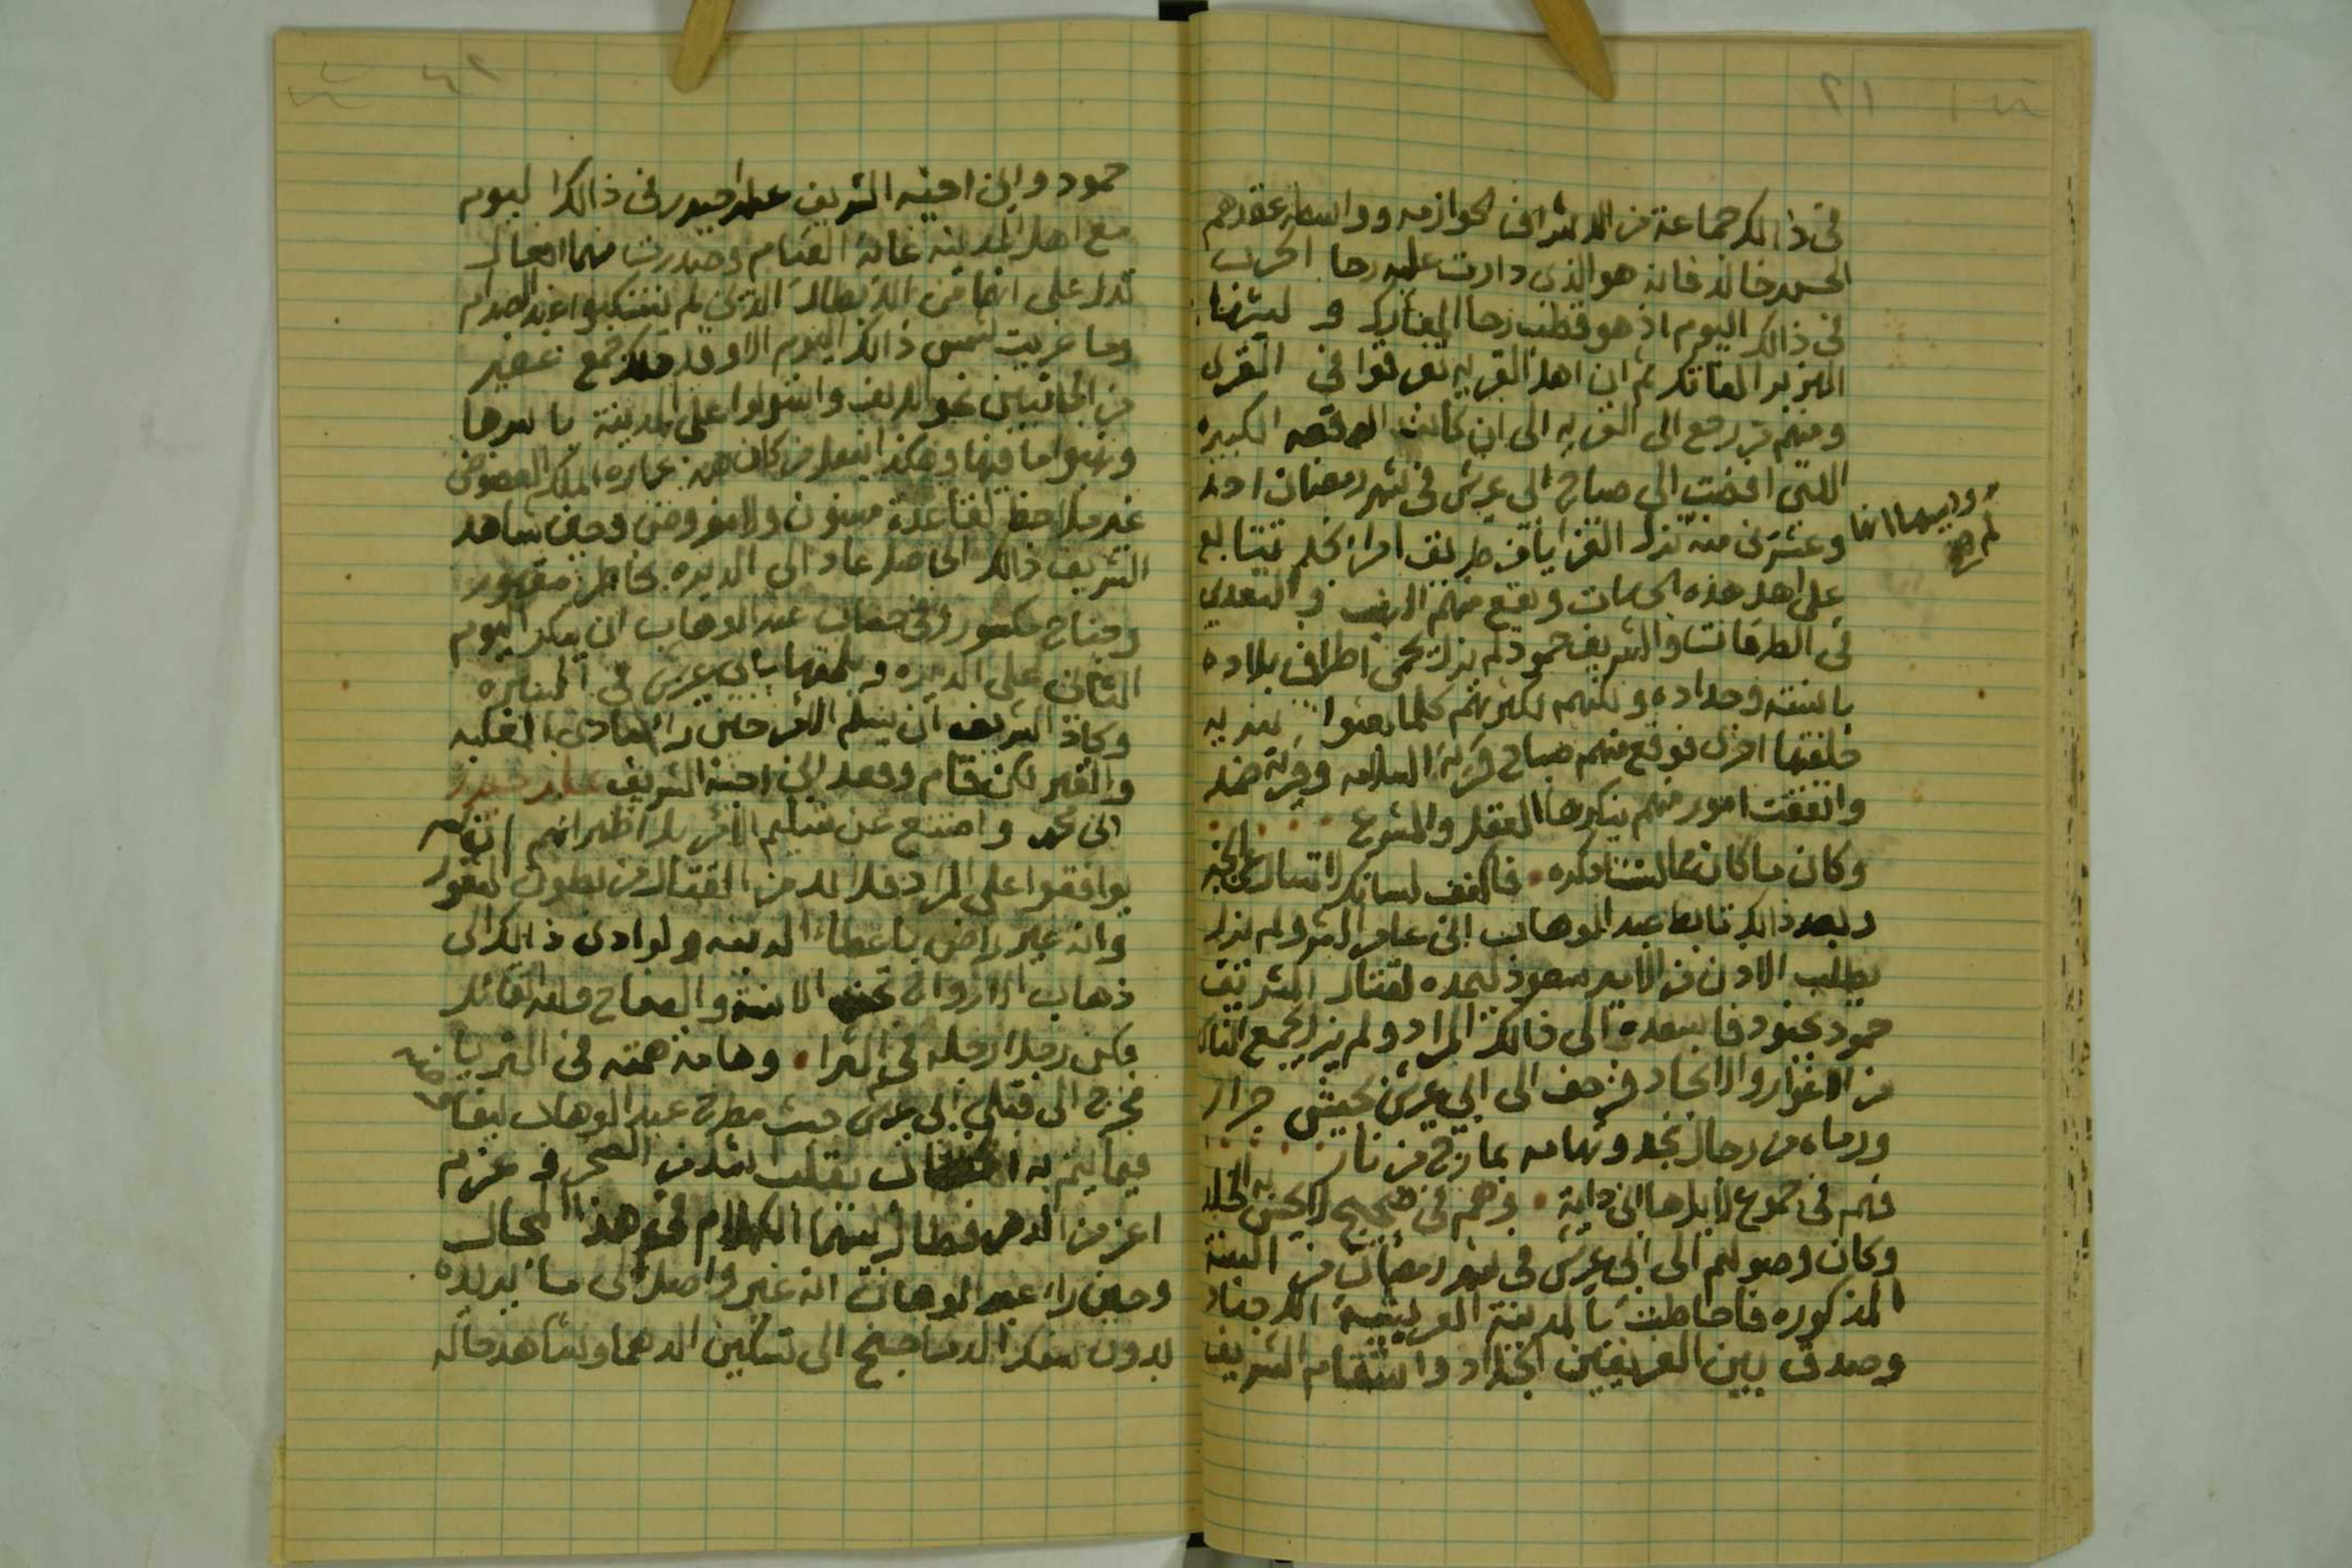 ٢١
في ذالك جماعة من الاشراف الخوازمه وواسطة عقدهم
الحسن خالد فانه هو الذي دارت عليه رحا الحرب
في ذالك اليوم اذ هو قطب رحا المعارك و ليثها
الهزبر الفاتك ثم ان اهل القريه تفرقوا في القرى
ومنهم من رجع الى القريه الى ان كانت الوقعه الكبيره
اللتي افضت الى صباح ابي عريش في شهر رمضان احد
وعشرين منه تزل الغزايا من طريف امراء نجد تتابع
على اهل هذه الجهات ويقع منهم النهب و التعدي
في الطرقات والشريف حمود لم يزل يحمي اطراف بلاده
باسنته وحداده ولكنهم لكثرتهم كلما بعثوا سريه
خلفتها اخرى فوقع منهم صباح قرية السلامه وقرية ضمد
واتفقت امور منهم ينكرها العقل والشرع
وكان ما كان مما لست اذكره • فاكفف لسانك لا تسال عن الخبر
وبعد ذالك تابط عبد الوهاب ابن عامر الشر ولم يزل
يطلب الاذن من الامير سعود ليمده لقتال الشريف
حمود بجنود فاسعده الى ذالك المراد ولم يزل يجمع الناس
من الاغوار والانجاد فزحف الى ابي عريش بجيش جرار
ورماه من رجال نجد وتهامه بمارج من نار
فهم في جموع لا يراها ابن داية • وهم في ضجيج لا يحس به الخلد
وكان وصولهم الى ابي عريش في شهر رمضان من السنة
المذكوره فاحاطت بالمدينة العريشية الاجناد
وصدق بين الفريقين الجلاد واستقام الشريف
حمود وابن اخيه الشريف علي حيدر في ذالك اليوم
مع اهل المدينه غاية القيام وصدرت منهما افعال
تدل على انهما من الابطال الذين لم ينتكبوا عند الصدام
وما غربت شمس ذالك اليوم الا وقد هلك جمع غفير
من الجانبين نحو الالف واستولوا على المدينة باسرها
ونهبوا ما فيها وهكذا يفعل من كان همه عمارة الملك العضوض
غير ملاحظ لقاعدة مسنون ولا مفروض وحين شاهد
الشريف ذالك الحاصل عاد الى الديره بخاطر مقهور
وجناح مكسور وفي حساب عبد الوهاب ان يبكر اليوم
الثاني على الديره و يلحقها بابي عريش في
وكاد الشريف ان يسلم الامر حين راى مبادي الغلبه
والقهر لكن قام وقعد ابن اخيه الشريف علي بن حيدر
ابن محمد وامتنع عن تسليم الامر بل اظهر انهم ان لم
يوافقوا على المراد فلا بد من القتال من بطون
وانه غير راض باعطاء الدنيه ولو ادى ذالك الى
ذهاب الارواح تحت الاسنة والصفاح ولله القائل
وكن رجلا رجله في الثرا • وهامة همته في الثريا
فخرج الى قبلي ابي عريش حيث مطرح عبد الوهاب
فيما يتم به بقلب اشد من الصخر و عزم
اعز من الدهر فطال بينهما الكلام في هذا المجال
وحين راى عبد الوهاب انه غير واصل الى ما يريده
بدون سفك الدما جنح الى تسكين الدهما وشاهد حاله